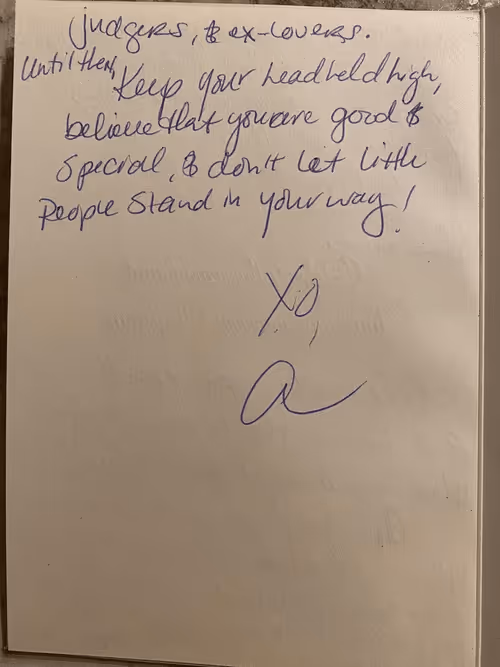 judgers, & ex-lovers.
Until then, Keep your head held high,
believe that you are good &
special, & don't let little
people stand in your way!
XO,
a